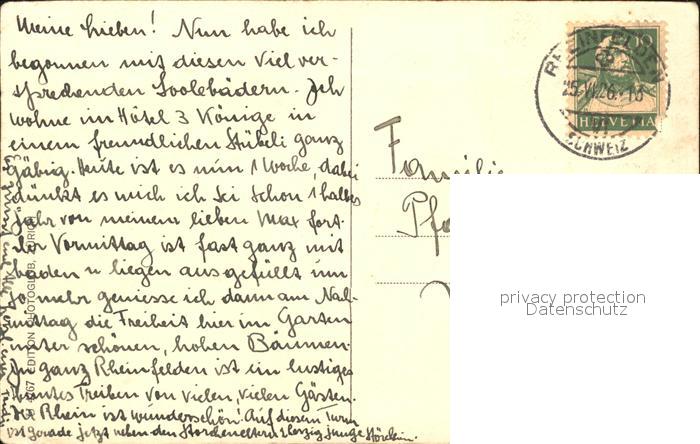 Meine Lieben! Nun habe ich
begonnen mit diesen viel ver-
sprechenden Soolebädern. Ich
wohne im Hôtel 3 Könige in
einem freundlichen Stübeli ganz
gäbig. Heute ist es nun 1 Woche, dabei
dünkt es mich ich sei schon 1 halbes
Jahr von meinem lieben Max fort.
Der Vormittag ist fast ganz mit
baden u liegen ausgefüllt um
so mehr geniesse ich dann am Nach-
mittag die Freiheit hier im Garten
unter schönen, hohen Bäumen.
In ganz Rheinfelden ist ein lustiges
buntes Treiben von vielen, vielen Gästen.
Der Rhein ist wunderschön! Auf diesem Turm
ist gerade jetzt neben den Storcheneltern 1 herzig junge Störchlein.
EDITION PHOTOGLOB, ZÜRICH
RHEINFELDEN
25.VI.26.
SCHWEIZ
10
HELVETIA
Familie
privacy protection
Datenschutz